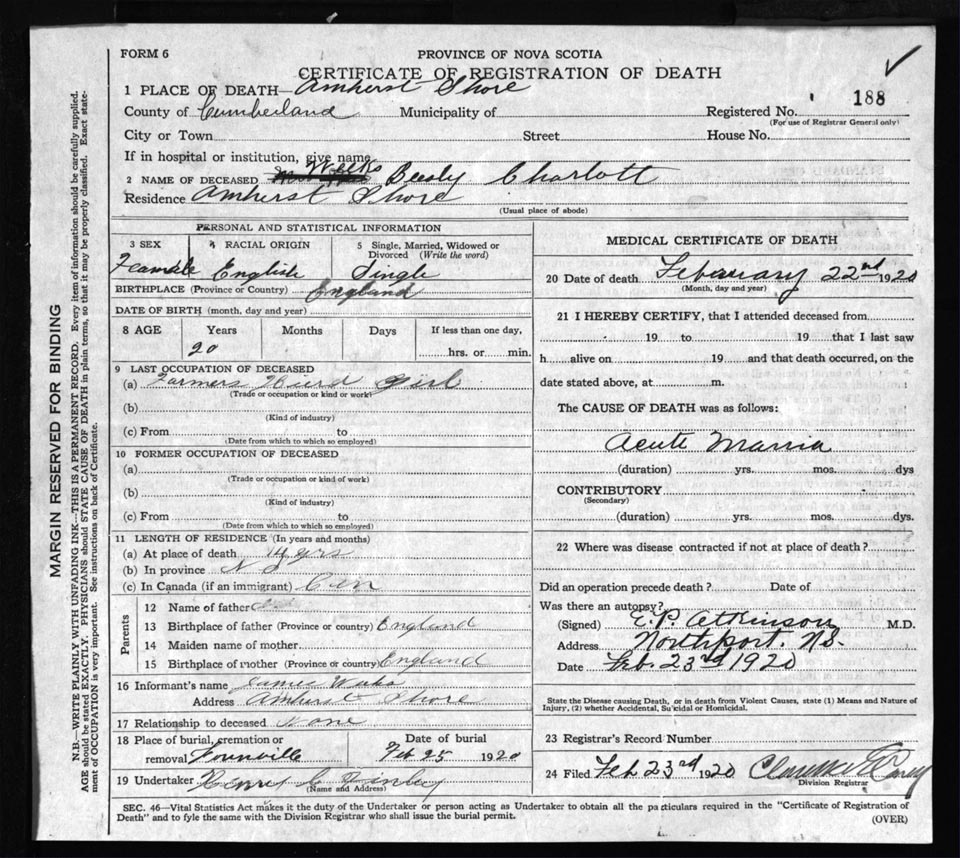 FORM 6
PROVINCE OF NOVA SCOTIA
CERTIFICATE OF REGISTRATION OF DEATH
1 PLACE OF DEATH— Amherst Shore
County of Cumberland Municipality of Registered No. 188
(For use of Registrar General only)
City or Town Street House No.
If in hospital or institution, give name
Weeks
2 NAME OF DECEASED Beesly Charlott
Residence Amherst Shore
(Usual place of abode)
PERSONAL AND STATISTICAL INFORMATION
3 SEX 4 RACIAL ORIGIN 5 Single, Married, Widowed or Divorced (Write the word)
Feamale English Single
BIRTHPLACE (Province or Country) England
DATE OF BIRTH (month, day and year)
8 AGE Years Months Days If less than one day,
20 hrs. or min.
9 LAST OCCUPATION OF DECEASED
(a) Farmers Hierd Girl
(Trade or occupation or kind or work)
(b)
(Kind of industry)
(c) From to
(Date from which to which so employed)
10 FORMER OCCUPATION OF DECEASED
(a)
(Trade or occupation or kind of work)
(b)
(Kind of industry)
(c) From to
(Date from which to which so employed)
11 LENGTH OF RESIDENCE (In years and months)
(a) At place of death 14 yrs
(b) In province N S
(c) In Canada (if an immigrant)
Parents
12 Name of father
13 Birthplace of father (Province or country) England
14 Maiden name of mother
15 Birthplace of mother (Province or country) England
16 Informant's name James Weeks
Address Amherst Shore
17 Relationship to deceased None
18 Place of burial, cremation or removal Date of burial
Feb 25 1920
19 Undertaker Henry C
(Name and Address)
MEDICAL CERTIFICATE OF DEATH
20 Date of death Febuary 22nd 1920
(Month, day and year)
21 I HEREBY CERTIFY, that I attended deceased from
19 to 19 that I last saw
h alive on 19 and that death occurred, on the
date stated above, at m.
The CAUSE OF DEATH was as follows:
Acute Mania
(duration) yrs. mos. dys
CONTRIBUTORY
(Secondary)
(duration) yrs. mos. dys.
22 Where was disease contracted if not at place of death?
Did an operation precede death? Date of
Was there an autopsy?
(Signed) E. P. Atkinson M.D.
Address Northport N.S.
Date Feb. 23rd 1920
State the Disease causing Death, or in death from Violent Causes, state (1) Means and Nature of
Injury, (2) whether Accidental, Suicidal or Homicidal.
23 Registrar's Record Number
24 Filed Feb 23rd 1920
Division Registrar
SEC. 46—Vital Statistics Act makes it the duty of the Undertaker or person acting as Undertaker to obtain all the particulars required in the "Certificate of Registration of
Death" and to fyle the same with the Division Registrar who shall issue the burial permit. (OVER)
MARGIN RESERVED FOR BINDING
N.B.—WRITE PLAINLY WITH UNFADING INK—THIS IS A PERMANENT RECORD. Every item of information should be carefully supplied.
AGE should be stated EXACTLY. PHYSICIANS should STATE CAUSE OF DEATH in plain terms, so that it may be properly classified. Exact state-
ment of OCCUPATION is very important. See instructions on back of Certificate.